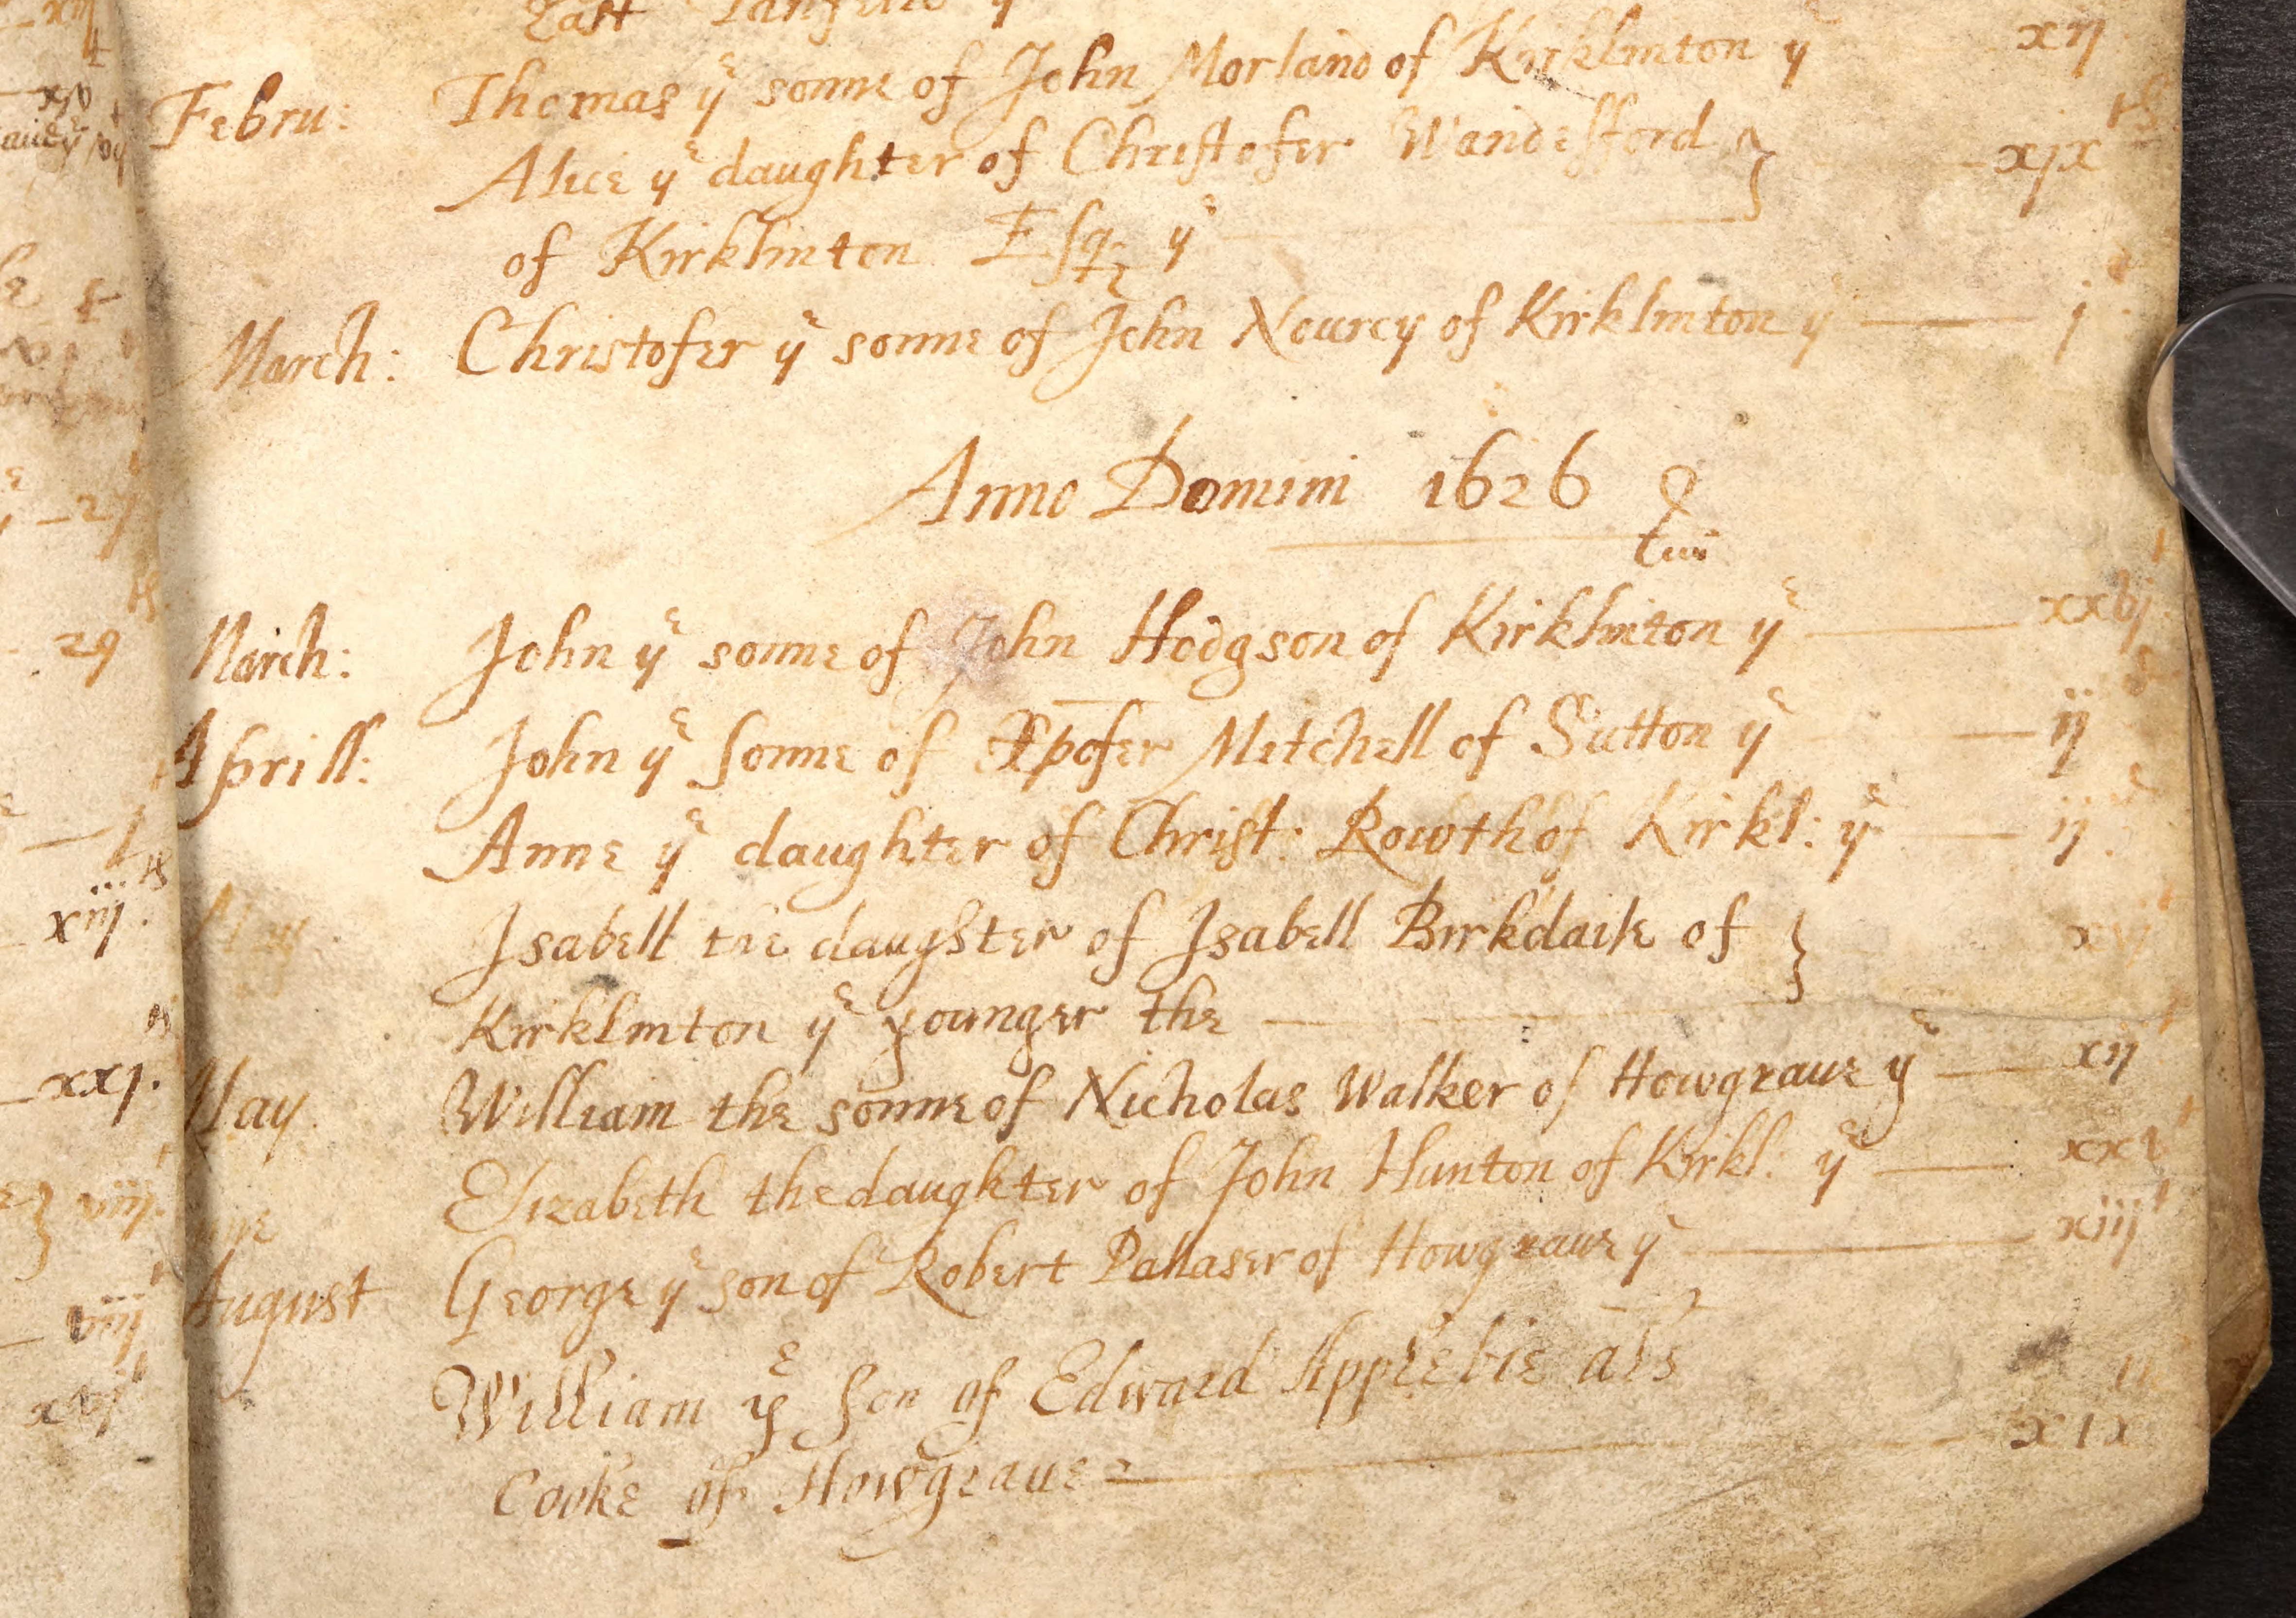 East Tanfeild yͤ
Febru: Thomas yͤ sonne of John Morland of Kirklinton yͤ xij
Alice yͤ daughter of Christofer Wandesford } xjx th
of Kirklinton Esqr yͤ
March: Christofer yͤ sonne of John Nourcy of Kirklinton yͤ j
Anno Domini 1626
March: John yͤ sonne of John Hodgson of Kirklinton yͤ xxvj
Aprill: John yͤ sonne of Xpofer Metchell of Sutton yͤ ij
Anne yͤ daughter of Christ: Rowth of Kirkl: yͤ ij
May Isabell the daughter of Isabell Birkdaile of }
Kirklinton yͤ younger the
May William the sonne of Nicholas Walker of Howgraue yͤ xij
Elizabeth the daughter of John Hunton of Kirkl: yͤ
August George yͤ son of Robert Pallaser of Howgraue yͤ xiij
William yͤ son of Edward Applebie als
Cooke of Howgraue xix
29
xiij
xxj
viij
viij